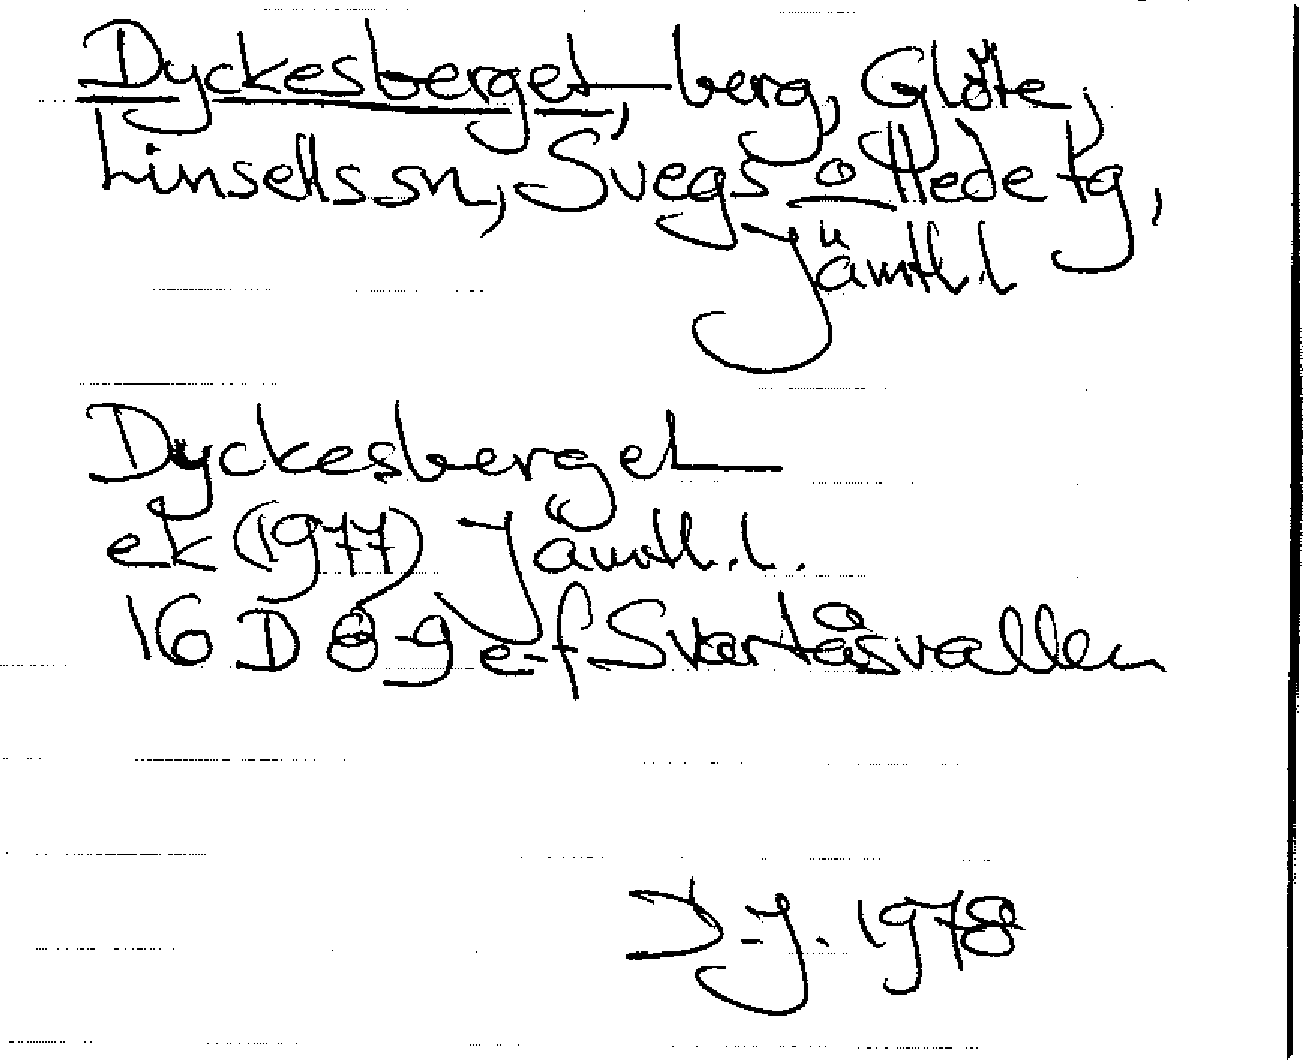 Dyckesberget, berg, Glöte,
Linsells sn, Svegs o Hede tg,
Jämtl.l
Dyckesberget
ek (1977) Jämtl.l.
16 D 8-9 e-f Svartåsvallen
D-J. 1978